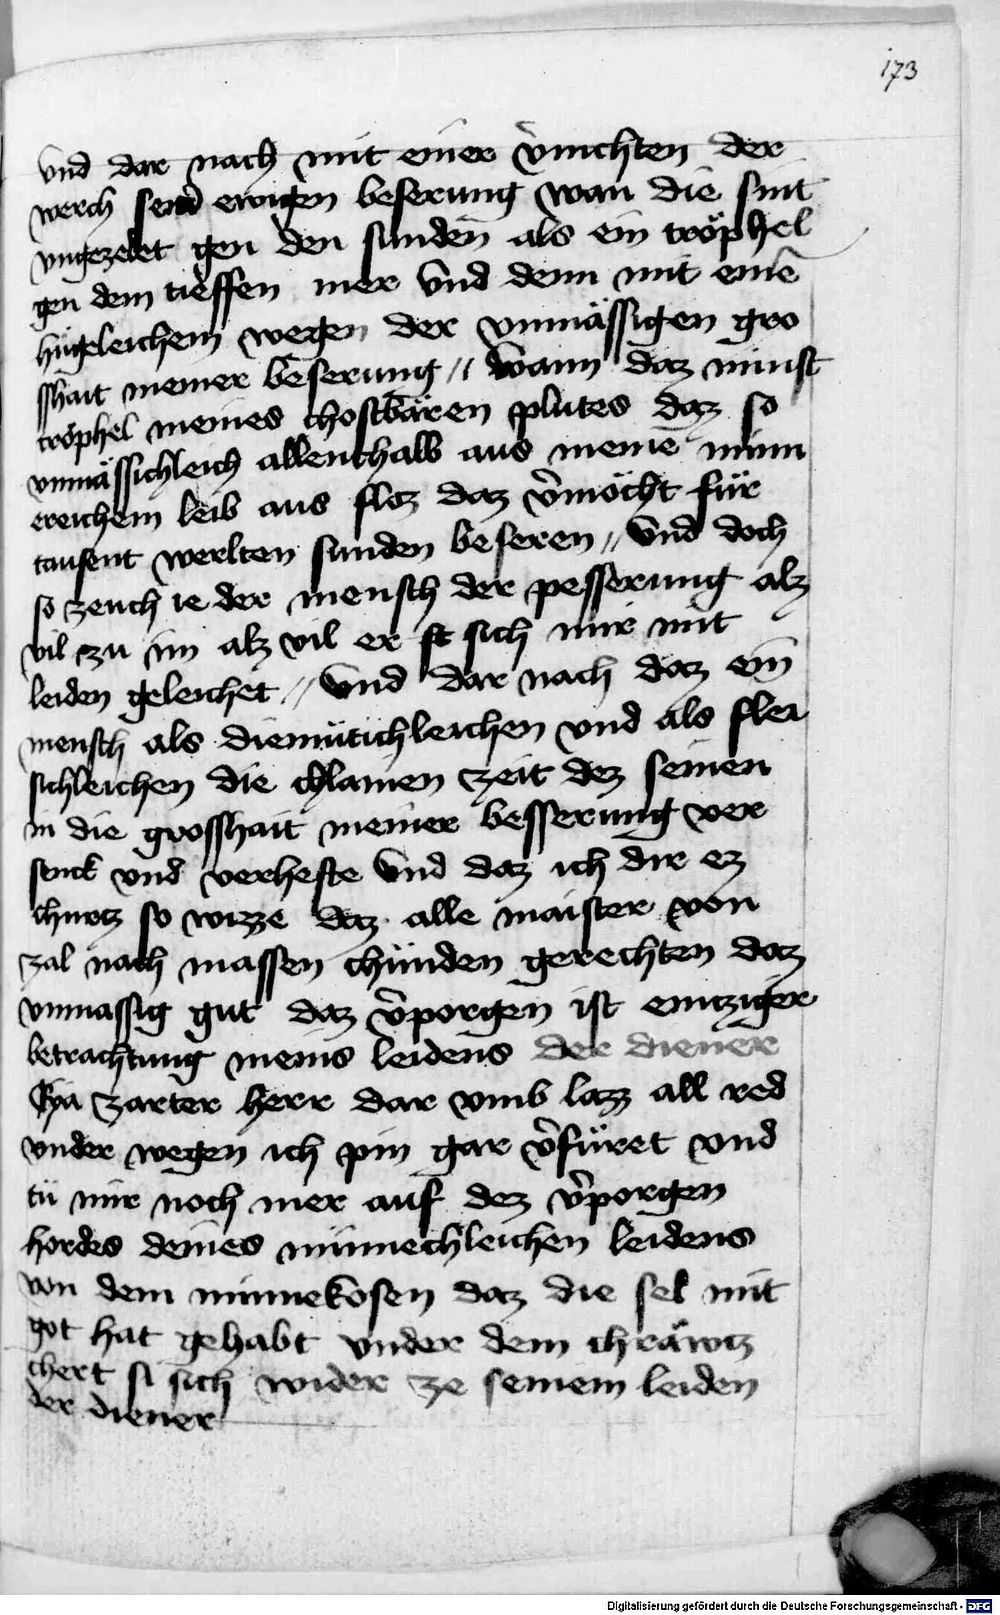 173
vnd dar nach mit einer v̓nichten der
werch seind ewigen beserung wan die sint
vngezelet gen den sunden als ein tröphel
gen dem tieffen mer vnd denn mit eine
hugeleichem wegen der vnmässigen gro
sshait meiner beserung // wann daz minst
tröphel meines chostbären plutes daz so
vnmässichleich allenthalb aus meine minn
ereichem leib aus floz daz v̓möcht für
tausent werlten sunden beseren // vnd doch
so zeuch ie der mensch der pesserung alz
vil zu im alz vil er st sich mir mit
leiden geleichet // vnd dar nach daz ein
mensch als diemütichleichen vnd als flei
sichleichen die chlainen zeit dez seinen
in die grosshait meiner besserung ver
senck vnd verhefte vnd daz ich dir ez
churtz so wizze daz alle maister von
zal nach massen chünden gerechten daz
vnmassig gut daz v̓porgen ist emtziger
betrachtung meins leidens der diener
Eya zarter herr dar vmb lazz all red
vnder wegen ich pin gar v̓füret vnd
tü mir noch mer auf dez v̓porgen
hordes deines minnechleichen leidens
von dem minnekosen daz die sel mit
got hat gehabt vnder dem chräwtz
chert si sich wider ze seinem leiden
der diener
Digitalisierung gefördert durch die Deutsche Forschungsgemeinschaft - DFG